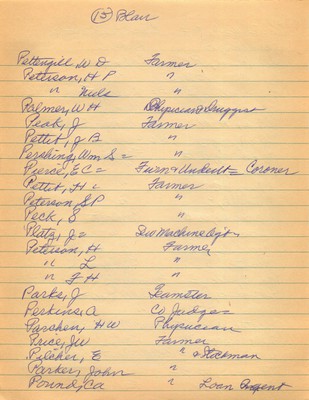 (15) Blair
Pettingill, W D Farmer
Peterson, H P "
" Niels "
Palmer, W H Physician & Druggist
Peak, J Farmer
Pettit, J B "
Pershing, Wm S = "
Pierce, E C = Furn & Undertk = Coroner
Pettit, H L Farmer
Peterson, S P "
Peck, S "
Platz, J = Sew Machine Agt
Peterson, H Farmer
" L "
" F H "
Parks, J Teamster
Perkins, A Co Judge
Parchen, H W Physician
Price, J W Farmer
Pilcher, E " & Stockman
Parker, John "
Pound, C A " Loan Agent